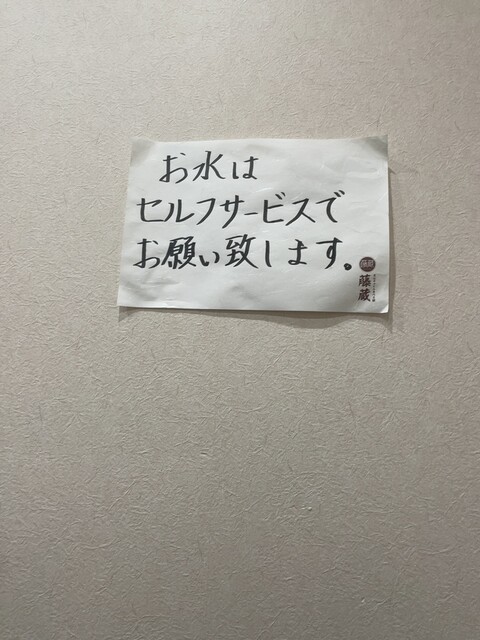 お水は
セルフサービスで
お願い致します。
藤蔵